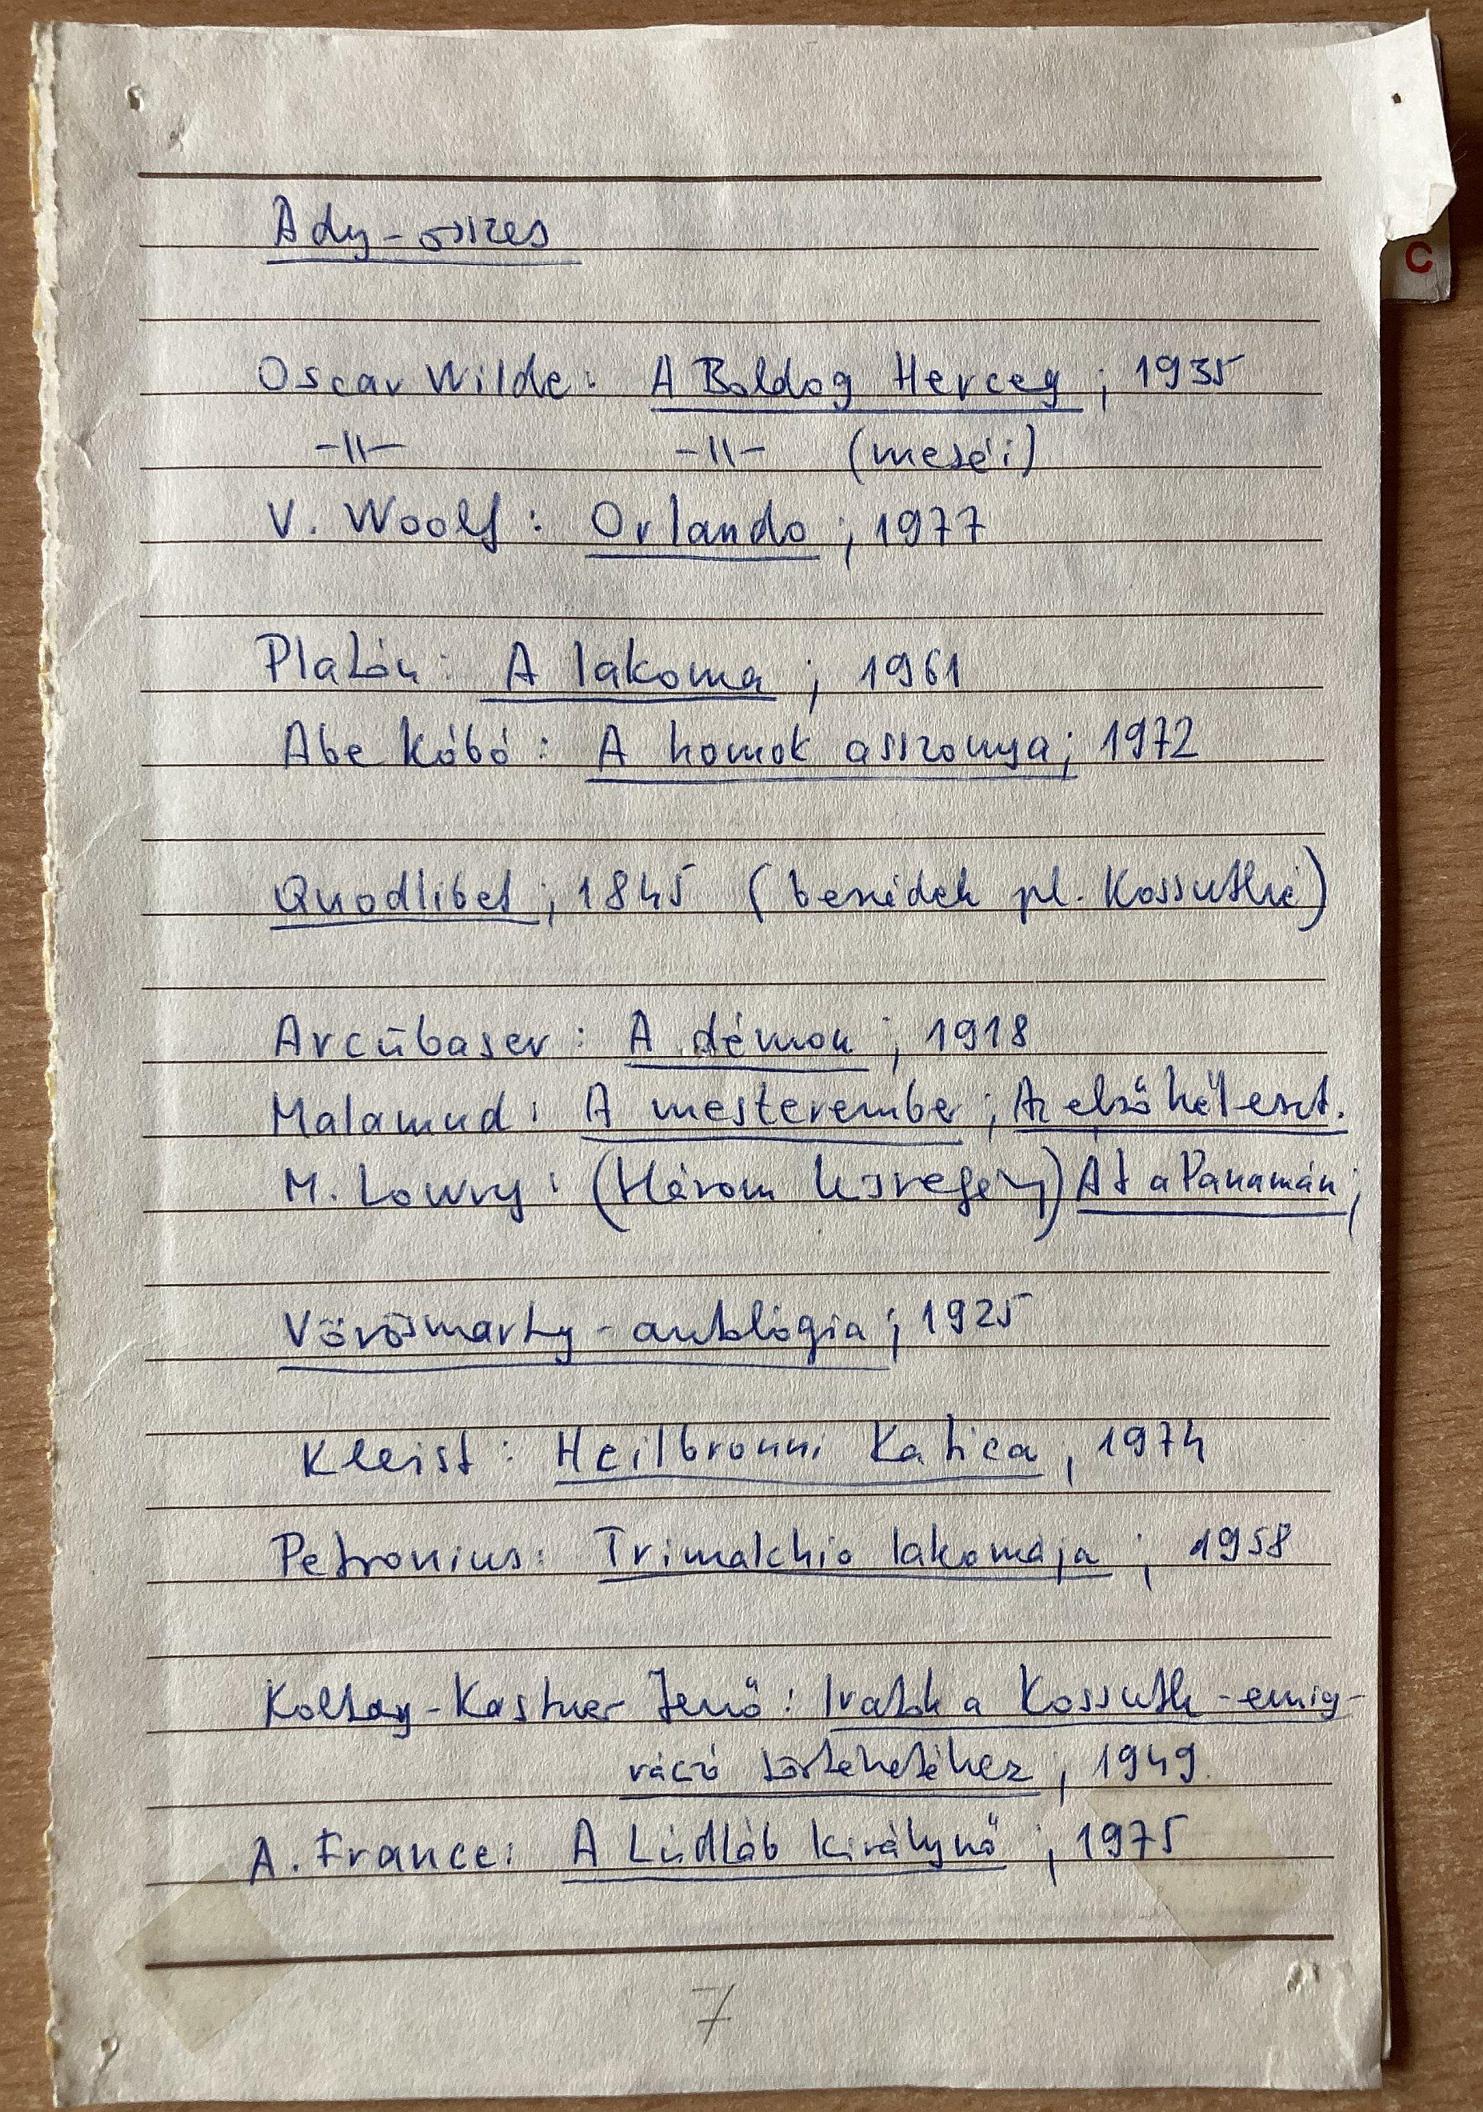 Ady-összes
Oscar Wilde: A Boldog Herceg; 1935
-||- -||- (meséi)
V. Woolf: Orlando; 1977
Platón: A lakoma; 1961
Abe Kóbó: A homok asszonya; 1972
Quodlibet; 1845 (beszédek pl. Kossuthé)
Arcübaser: A démon; 1918
Malamud: A mesterember; Az első hét eszt.
M. Lowry: (Három kisregény) Át a Panamán;
Vörösmarty-antológia; 1925
Kleist: Heilbronni Katica, 1974
Petronius: Trimalchio lakomája; 1958
Koltay-Kastner Jenő: Iratok a Kossuth-emig-
ráció történetéhez; 1949.
A. France: A Lúdláb királynő; 1975
7
C